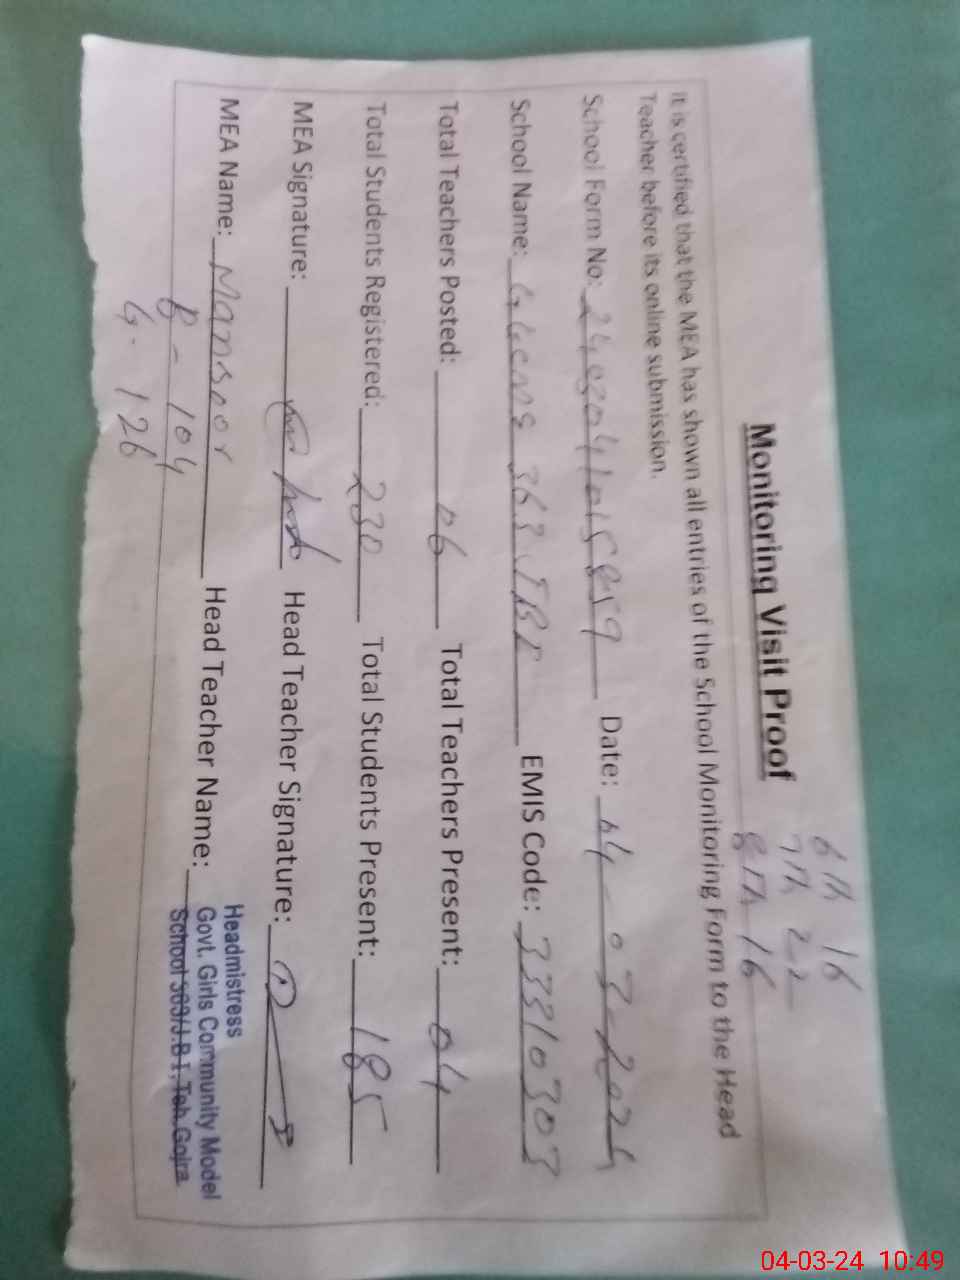 6th 16
7th 22
8th 16
Monitoring Visit Proof
It is certified that the MEA has shown all entries of the School Monitoring Form to the Head
Teacher before its online submission.
School Form No: Date: 04-03-2024
School Name: GGCMS 363 JB EMIS Code: 33310303
Total Teachers Posted: 06 Total Teachers Present: 04
Total Students Registered: 230 Total Students Present: 185
MEA Signature: Head Teacher Signature:
MEA Name: Mansoor Head Teacher Name:
Headmistress
Govt. Girls Community Model
School 363/J.B I, Teh. Gojra
B - 104
G - 126
04-03-24 10:49